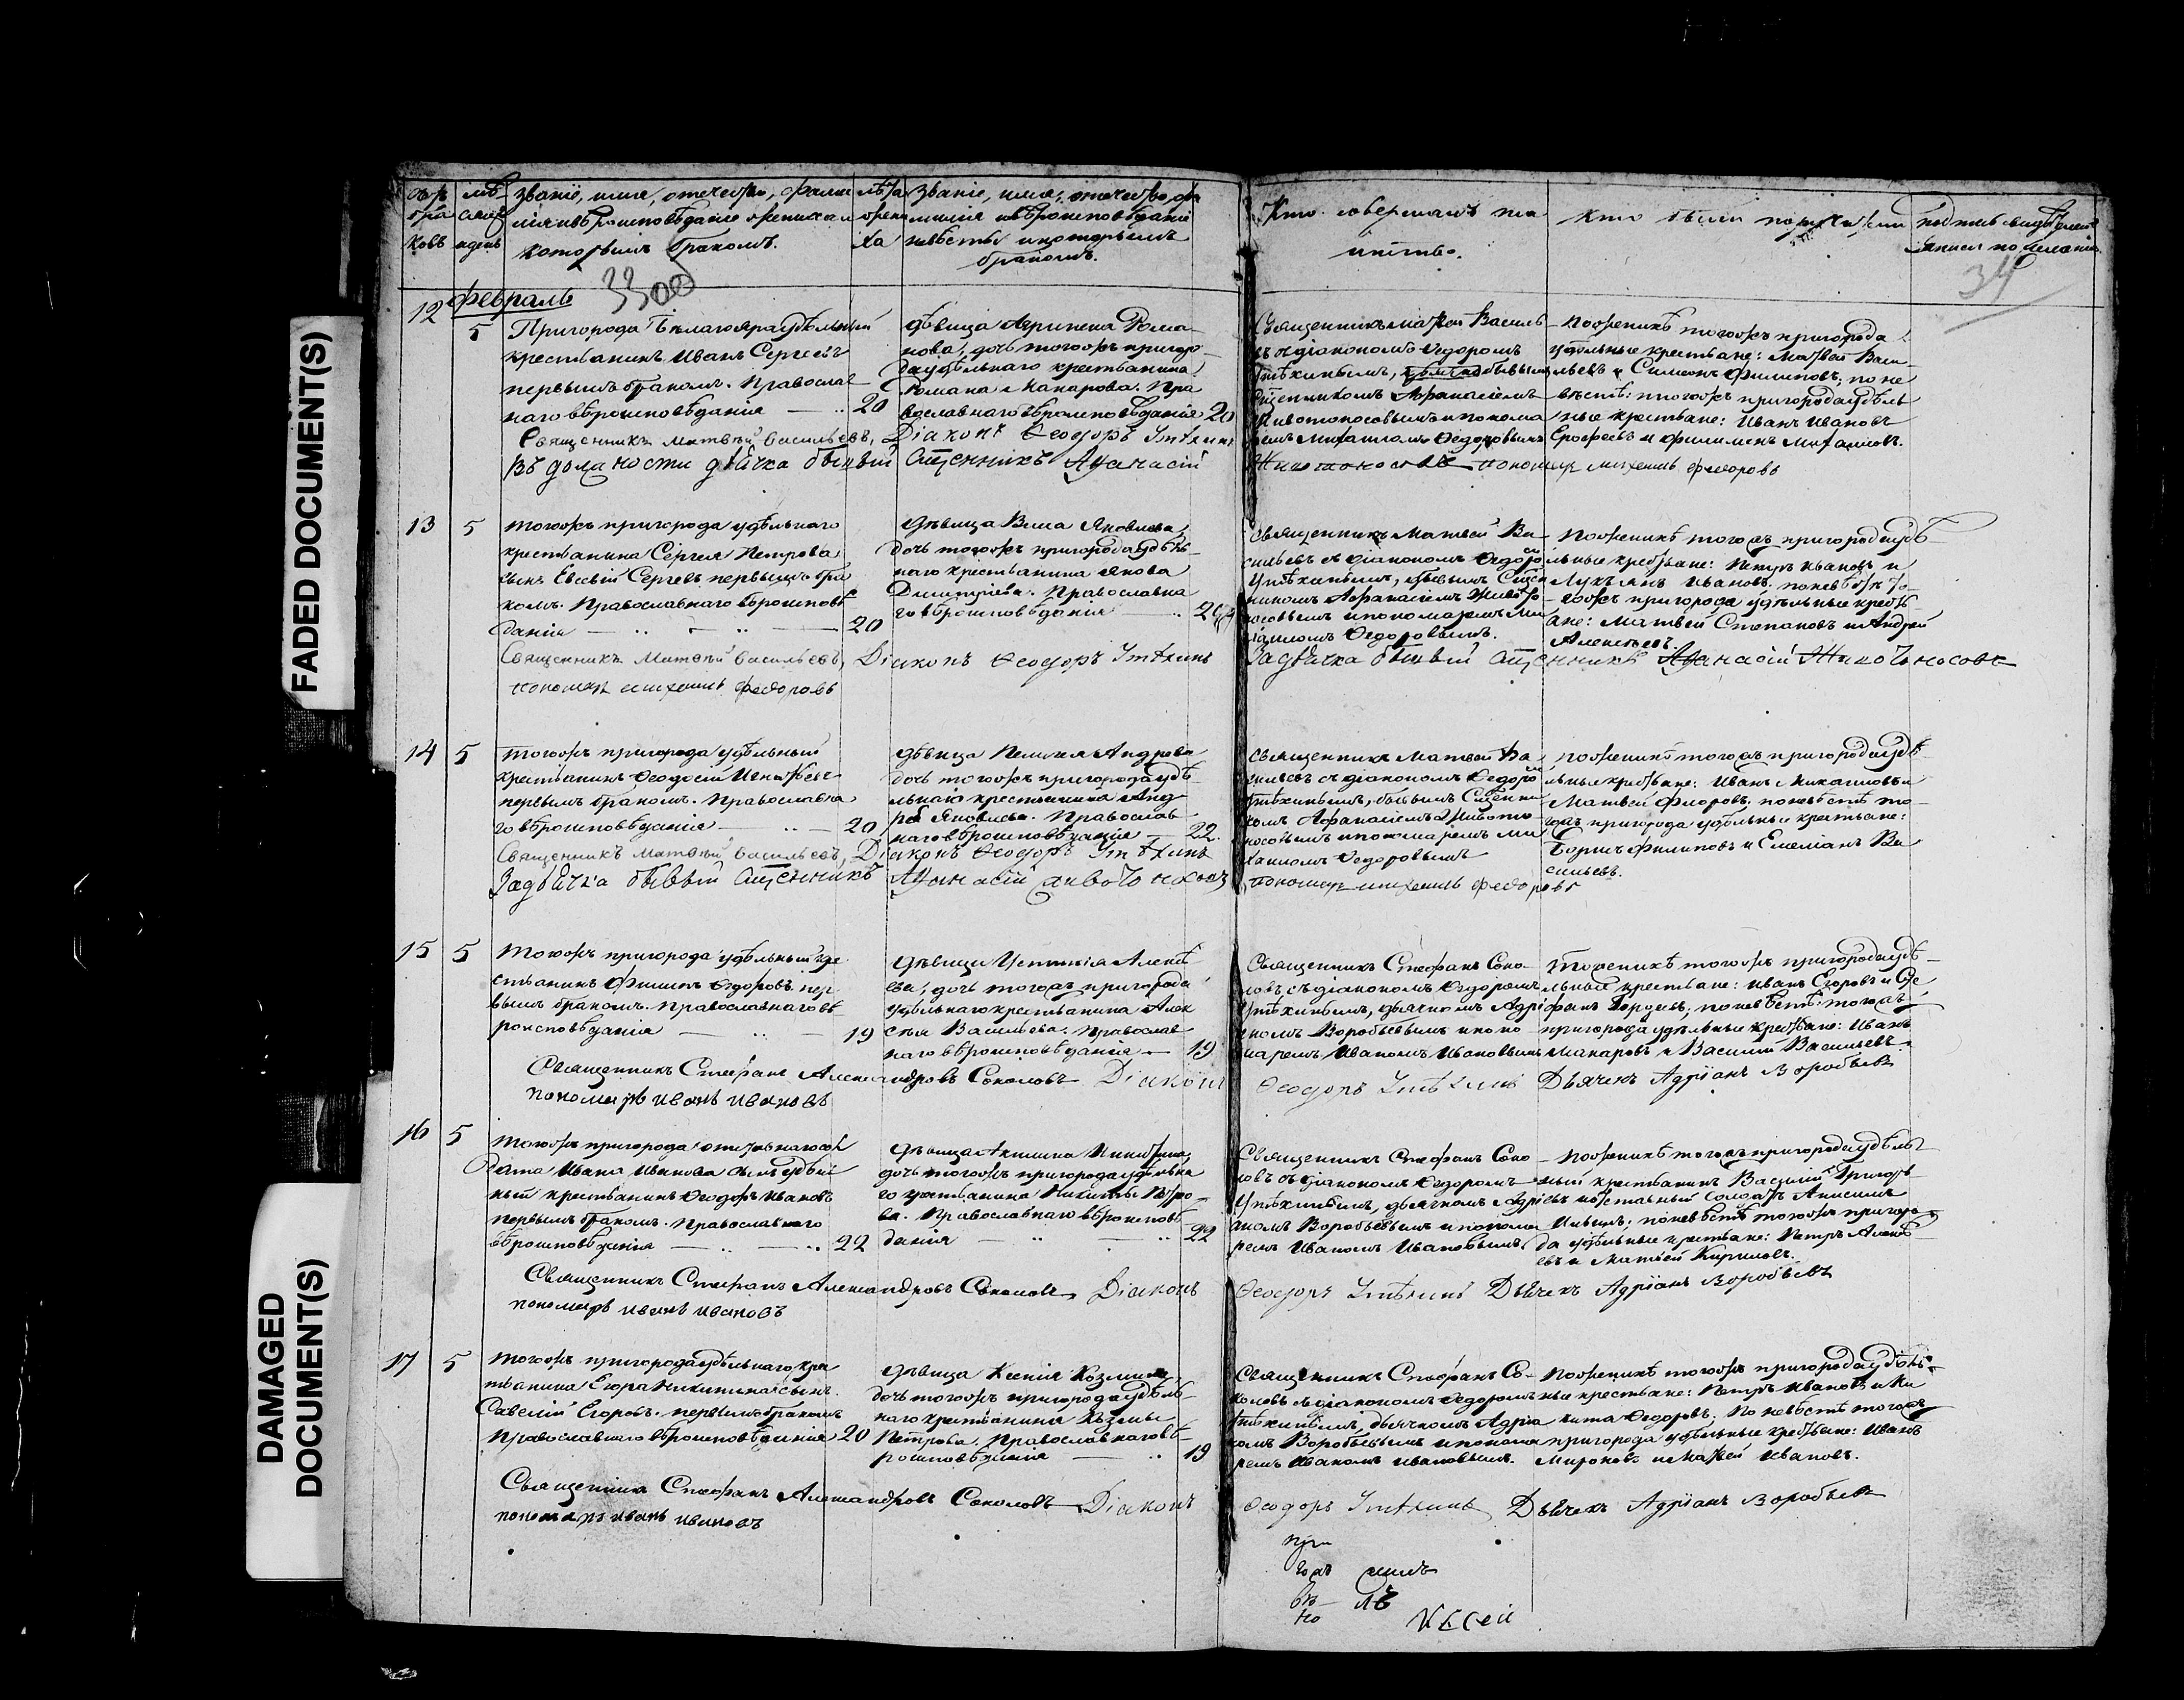 FADED DOCUMENT(S)
DAMAGED
DOCUMENT(S)
званіе, имя, отечество,
которымъ бракомъ.
невѣсты и которымъ
бракомъ.
Кто совершалъ таи
инство.
Кто были поручители
34
3300
12 Февраль
5 Пригорода Бѣлаго Яра удѣльный
крестьянинъ Иванъ Сергеевъ
первымъ бракомъ. Православ
наго вѣроисповѣданія 20
дѣвица Агрипена Рома
нова, дочь тогожъ пригоро
да удѣльнаго крестьянина
Романа Макарова. Пра
вославнаго вѣроисповѣданія 20
Священникъ Матвей Василь
евъ съ діакономъ Ѳедоромъ
Утѣхинымъ, бывшимъ
Священникомъ Афанасіемъ
Животоносовымъ и понома
ремъ Михаиломъ Ѳедоровымъ
По женихѣ тогожъ пригорода
удѣльные крестьяне: Матвей Васи
льевъ и Симеонъ Филиповъ; по не
вѣстѣ: тогожъ пригорода удѣль
ные крестьяне: Иванъ Ивановъ
Ерофеевъ и Филимонъ Михаиловъ.
Священникъ Матвѣй Васильевъ, Діаконъ Ѳеодоръ Утѣхинъ
Въ должности дьячка бывшій Священникъ Афанасій Животоносовъ пономарь Михаилъ Федоровъ
13 5 тогожъ пригорода удѣльнаго
крестьянина Сергея Петрова
сынъ Евсевій Сергеевъ первымъ бра
комъ. Православнаго вѣроисповѣ
данія 20
дѣвица Васа Яковлева,
дочь тогожъ пригорода удѣль
наго крестьянина Якова
Димитріева. Православна
го вѣроисповѣданія
Священникъ Матвей Ва
сильевъ съ діакономъ Ѳедоро
Утѣхинымъ, бывшимъ Свщен
никомъ Афанасіемъ Живото
носовымъ и пономаремъ Ми
хаиломъ Ѳедоровымъ.
По женихѣ тогожъ пригорода удѣ
льные крестьяне: Петръ Ивановъ и
Лукъянъ Ивановъ. по невѣстѣ то
гожъ пригорода удѣльные кресть
яне: Матвей Степановъ и Андрей
Алексѣевъ.
Священникъ Матвѣй Васильевъ, Діаконъ Ѳеодоръ Утѣхинъ За дьячка бывшій Священникъ Афанасій Животоносовъ
пономарь Михаилъ Федоровъ
14 5 тогожъ пригорода удѣльный
крестьянинъ Ѳеодосій Игнатьевъ
первымъ бракомъ. Православна
го вѣроисповѣданія 20
дѣвица Пелагея Андрева
дочь тогожъ пригорода удѣ
льнаго крестьянина Анд
рея Яковлева. Православ
наго вѣроисповѣданія 22.
Священникъ Матвей Ва
сильевъ съ діакономъ Ѳедоро
Утѣхинымъ, бывшимъ Священни
комъ Афанасіемъ Животоно
носовымъ и пономаремъ Ми
хаиломъ Ѳедоровымъ
по женихѣ тогожъ пригорода удѣ
льные крестьяне: Иванъ Михаиловъ и
Матвей Флоровъ. по невѣстѣ то
гожъ пригорода удѣльные крестьяне:
Борисъ Филиповъ и Емельянъ Ва
сильевъ.
Священникъ Матвѣй Васильевъ, Діаконъ Ѳеодоръ Утѣхинъ
За дьячка бывшій Священникъ Афанасій Животоносовъ пономарь Михаилъ Федоровъ
15 5 тогожъ пригорода удѣльный кре
стьянинъ Филипъ Ѳедоровъ пер
вымъ бракомъ. Православнаго вѣ
роисповѣданія 19
дѣвица Устинія Алексѣ
ева, дочь тогожъ пригорода
удѣльнаго крестьянина Алек
сѣя Васильева. Православ
наго вѣроисповѣданія 19
Священникъ Стефанъ Соко
ловъ съ діакономъ Ѳедоромъ
Утѣхинымъ, дьячкомъ Адрі
аномъ Воробьевымъ и поно
маремъ Иваномъ Ивановымъ
По женихѣ тогожъ пригорода удѣ
льные крестьяне: Иванъ Егоровъ и
Гордеевъ, по невѣстѣ: тогожъ
пригорода удѣльные крестьяне: Иванъ
Макаровъ и Василій Васильевъ.
Священникъ Стефанъ Александровъ Соколовъ Діаконъ Ѳеодоръ Утѣхинъ Дьячекъ Адріанъ Воробьевъ
пономарь Иванъ Ивановъ
16 5 тогожъ пригорода
Ивана Иванова сынъ удѣль
ный крестьянинъ Ѳеодоръ Ивановъ
первымъ бракомъ. Православнаго
вѣроисповѣданія 22
дѣвица Акилина Никитина,
дочь тогожъ пригорода удѣльна
го крестьянина Никиты Петро
ва. Православнаго вѣроисповѣ
данія 22
Священникъ Стефанъ Соко
ловъ съ діакономъ Ѳедоромъ
Утѣхинымъ, дьячкомъ Адрі
аномъ Воробьевымъ и понома
ремъ Иваномъ Ивановымъ.
По женихѣ тогожъ пригорода удѣль
ный крестьянинъ Василій Григорь
евъ и отставный солдатъ Анисимъ
по невѣстѣ тогожъ пригоро
да удѣльные крестьяне: Петръ Алексѣ
евъ и Матвей Кириловъ.
Священникъ Стефанъ Александровъ Соколовъ Діаконъ Ѳеодоръ Утѣхинъ Дьячекъ Адріанъ Воробьевъ
пономарь Иванъ Ивановъ
17 5 тогожъ пригорода удѣльнаго крес
тьянина Егора Никитина сынъ
Савелій Егоровъ. первымъ бракомъ
Православнаго вѣроисповѣданія 20
дѣвица Ксенія Козмина,
дочь тогожъ пригорода удѣль
наго крестьянина Козмы
Петрова. Православнаго вѣ
роисповѣданія 19
Священникъ Стефанъ Со
коловъ съ діакономъ Ѳедоромъ
Утѣхинымъ, дьячкомъ Адріа
номъ Воробьевымъ и понома
ремъ Иваномъ Ивановымъ.
По женихѣ тогожъ пригорода удѣль
ные крестьяне: Петръ Ивановъ и Ни
кита Ѳедоровъ. По невѣстѣ тогожъ
пригорода удѣльные крестьяне: Иванъ
Мироновъ и Матвей Ивановъ.
Священникъ Стефанъ Александровъ Соколовъ Діаконъ Ѳеодоръ Утѣхинъ Дьячекъ Адріанъ Воробьевъ
пономарь Иванъ Ивановъ